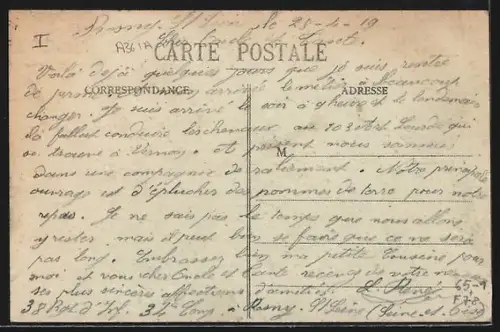 I
A361A
Rosny S/Seine le 25-4-19
Cher Oncle et Tante.
CARTE POSTALE
CORRESPONDANCE
ADRESSE
M
Voilà déjà quelques jours que je suis rentré
de perm arrivé le métier à beaucoup
changer. Je suis arrivé le soir à 9 heures et le lendemain
il a fallut conduire les chevaux au 103 Art. Lourde qui
se trouve à Vernon. et présent nous sommes
dans une compagnie de ralliement. Notre principale
ouvrage est d'éplucher des pommes de terre pour notre
repas. Je ne sais pas le temps que nous allons
y rester mais il peut bien se faire que ce ne sera
pas long. Embrasser bien ma petite cousine pour
moi et vous cher Oncle et Tante recevez de votre neveu
ses plus sincères affections d'amitiés. René
38 Rgt d'Inf. 34 Comp à Rosny S/Seine (Seine et Oise)
65-1
F78